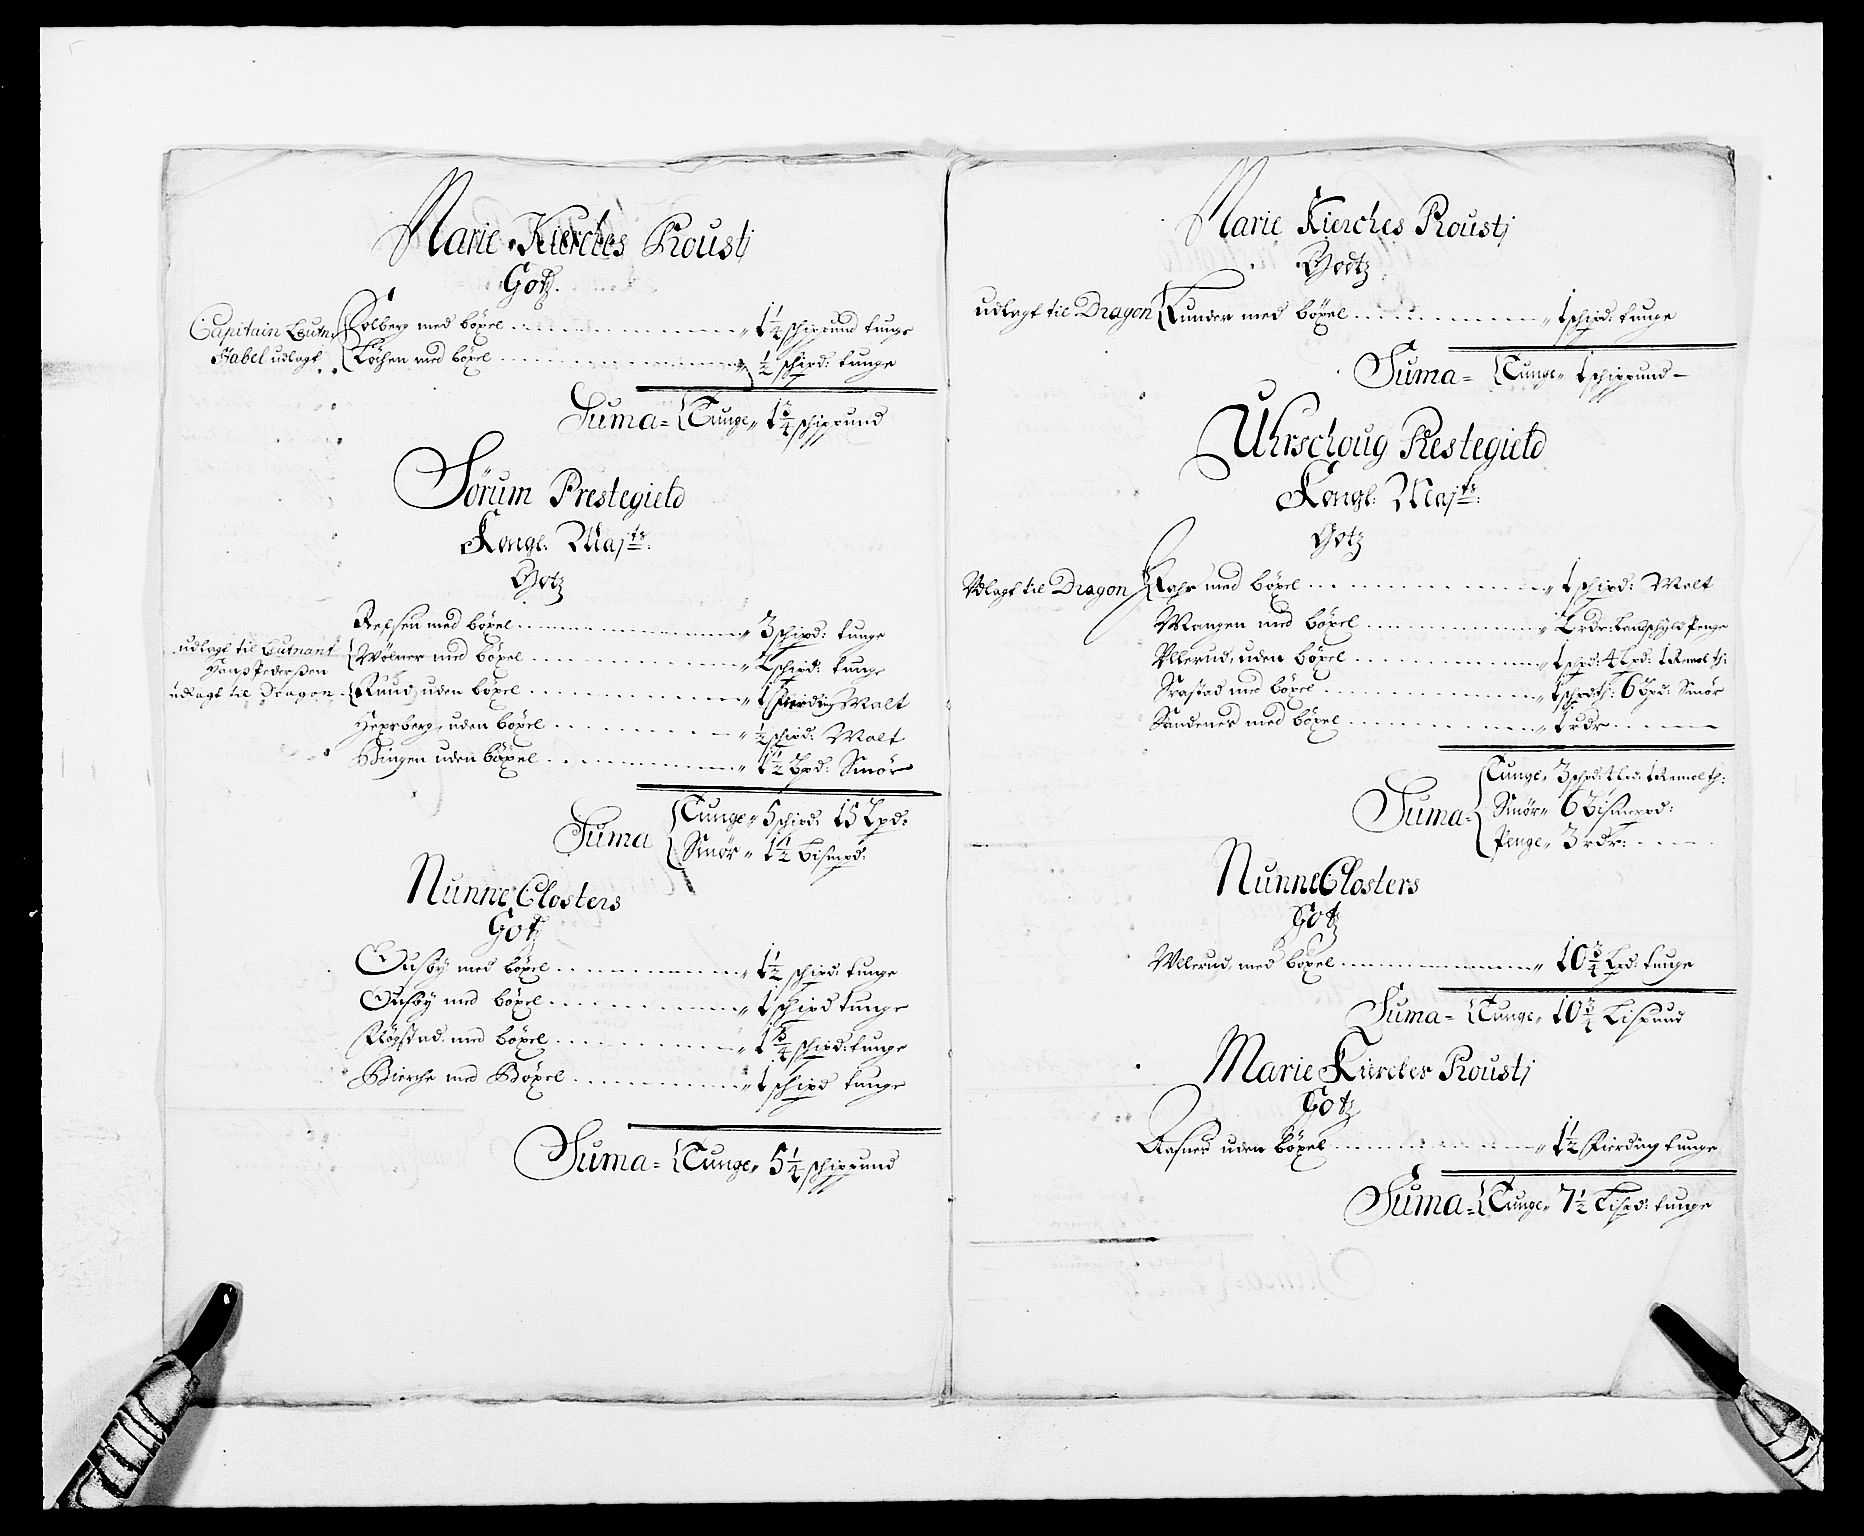 Marie Kierches Prousti
Gotz.
Capitain Leutn: Solberg med böxel 1 1/4 schippund tunge
Habel udlagt Köhen med böxel 1/2 schipd: tunge
Suma = Tunge 1 3/4 schippund
Sörum Prestegield
Kongl: Maj:ts
Gotz
Refsen med böxel 3 schipd: tunge
udlagt til Leutnant Wölner med böxel 2 schipd: tunge
Hans Pederßen
udlagt til Dragon Ruud uden böxel 1 fierding Malt
Hexsberg, uden böxel 1/2 schipd: Malt
Bingen uden böxel 1 1/2 Bpd: Smör
Suma Tunge 5 schipd: 15 Lpd:
Smör 1 1/2 Bismpd:
Nunne Closters
Gotz
Ousbÿ med böxel 1 1/2 schipd: tunge
Ousbÿ med böxel 1 schipd tunge
Flögstad med böxel 1 3/4 schipd: tunge
Bierche med Böxel 1 schipd tunge
Suma = Tunge 5 1/4 schippund
Marie Kierches Prousti
Godtz
udlagt til Dragon Lunder med böxel 1 schipd: tunge
Suma = Tunge 1 schippund
Uhrschoug Prestegield
Kongl: Maj:ts:
Gotz
Vdlagt til Dragon Kahr med böxel 1 schipd: Malt
Mangen med böxel 2 rdr: Landschyld Penge
Ullerud, uden böxel 1 schpd: 4 Lpd: 1 Remol th:
Srastad med böxel 1 schpdth: 6 Bpd: Smör
Sandenes med böxel 1 rdr
Suma = Tunge 3 schpd: 4 Lpd: 1 Remolth:
Smör 6 Bismerpd:
Penge 3 rdr:
Nunne Closters
Gotz
Ullerud, med böxel 10 3/4 Lpd: tunge
Suma = Tunge 10 3/4 Lispund
Marie Kierches Prousti
Gotz
Aafnes uden böxel 1 1/2 Fierding tunge
Suma = Tunge 7 1/2 Lispd: tunge